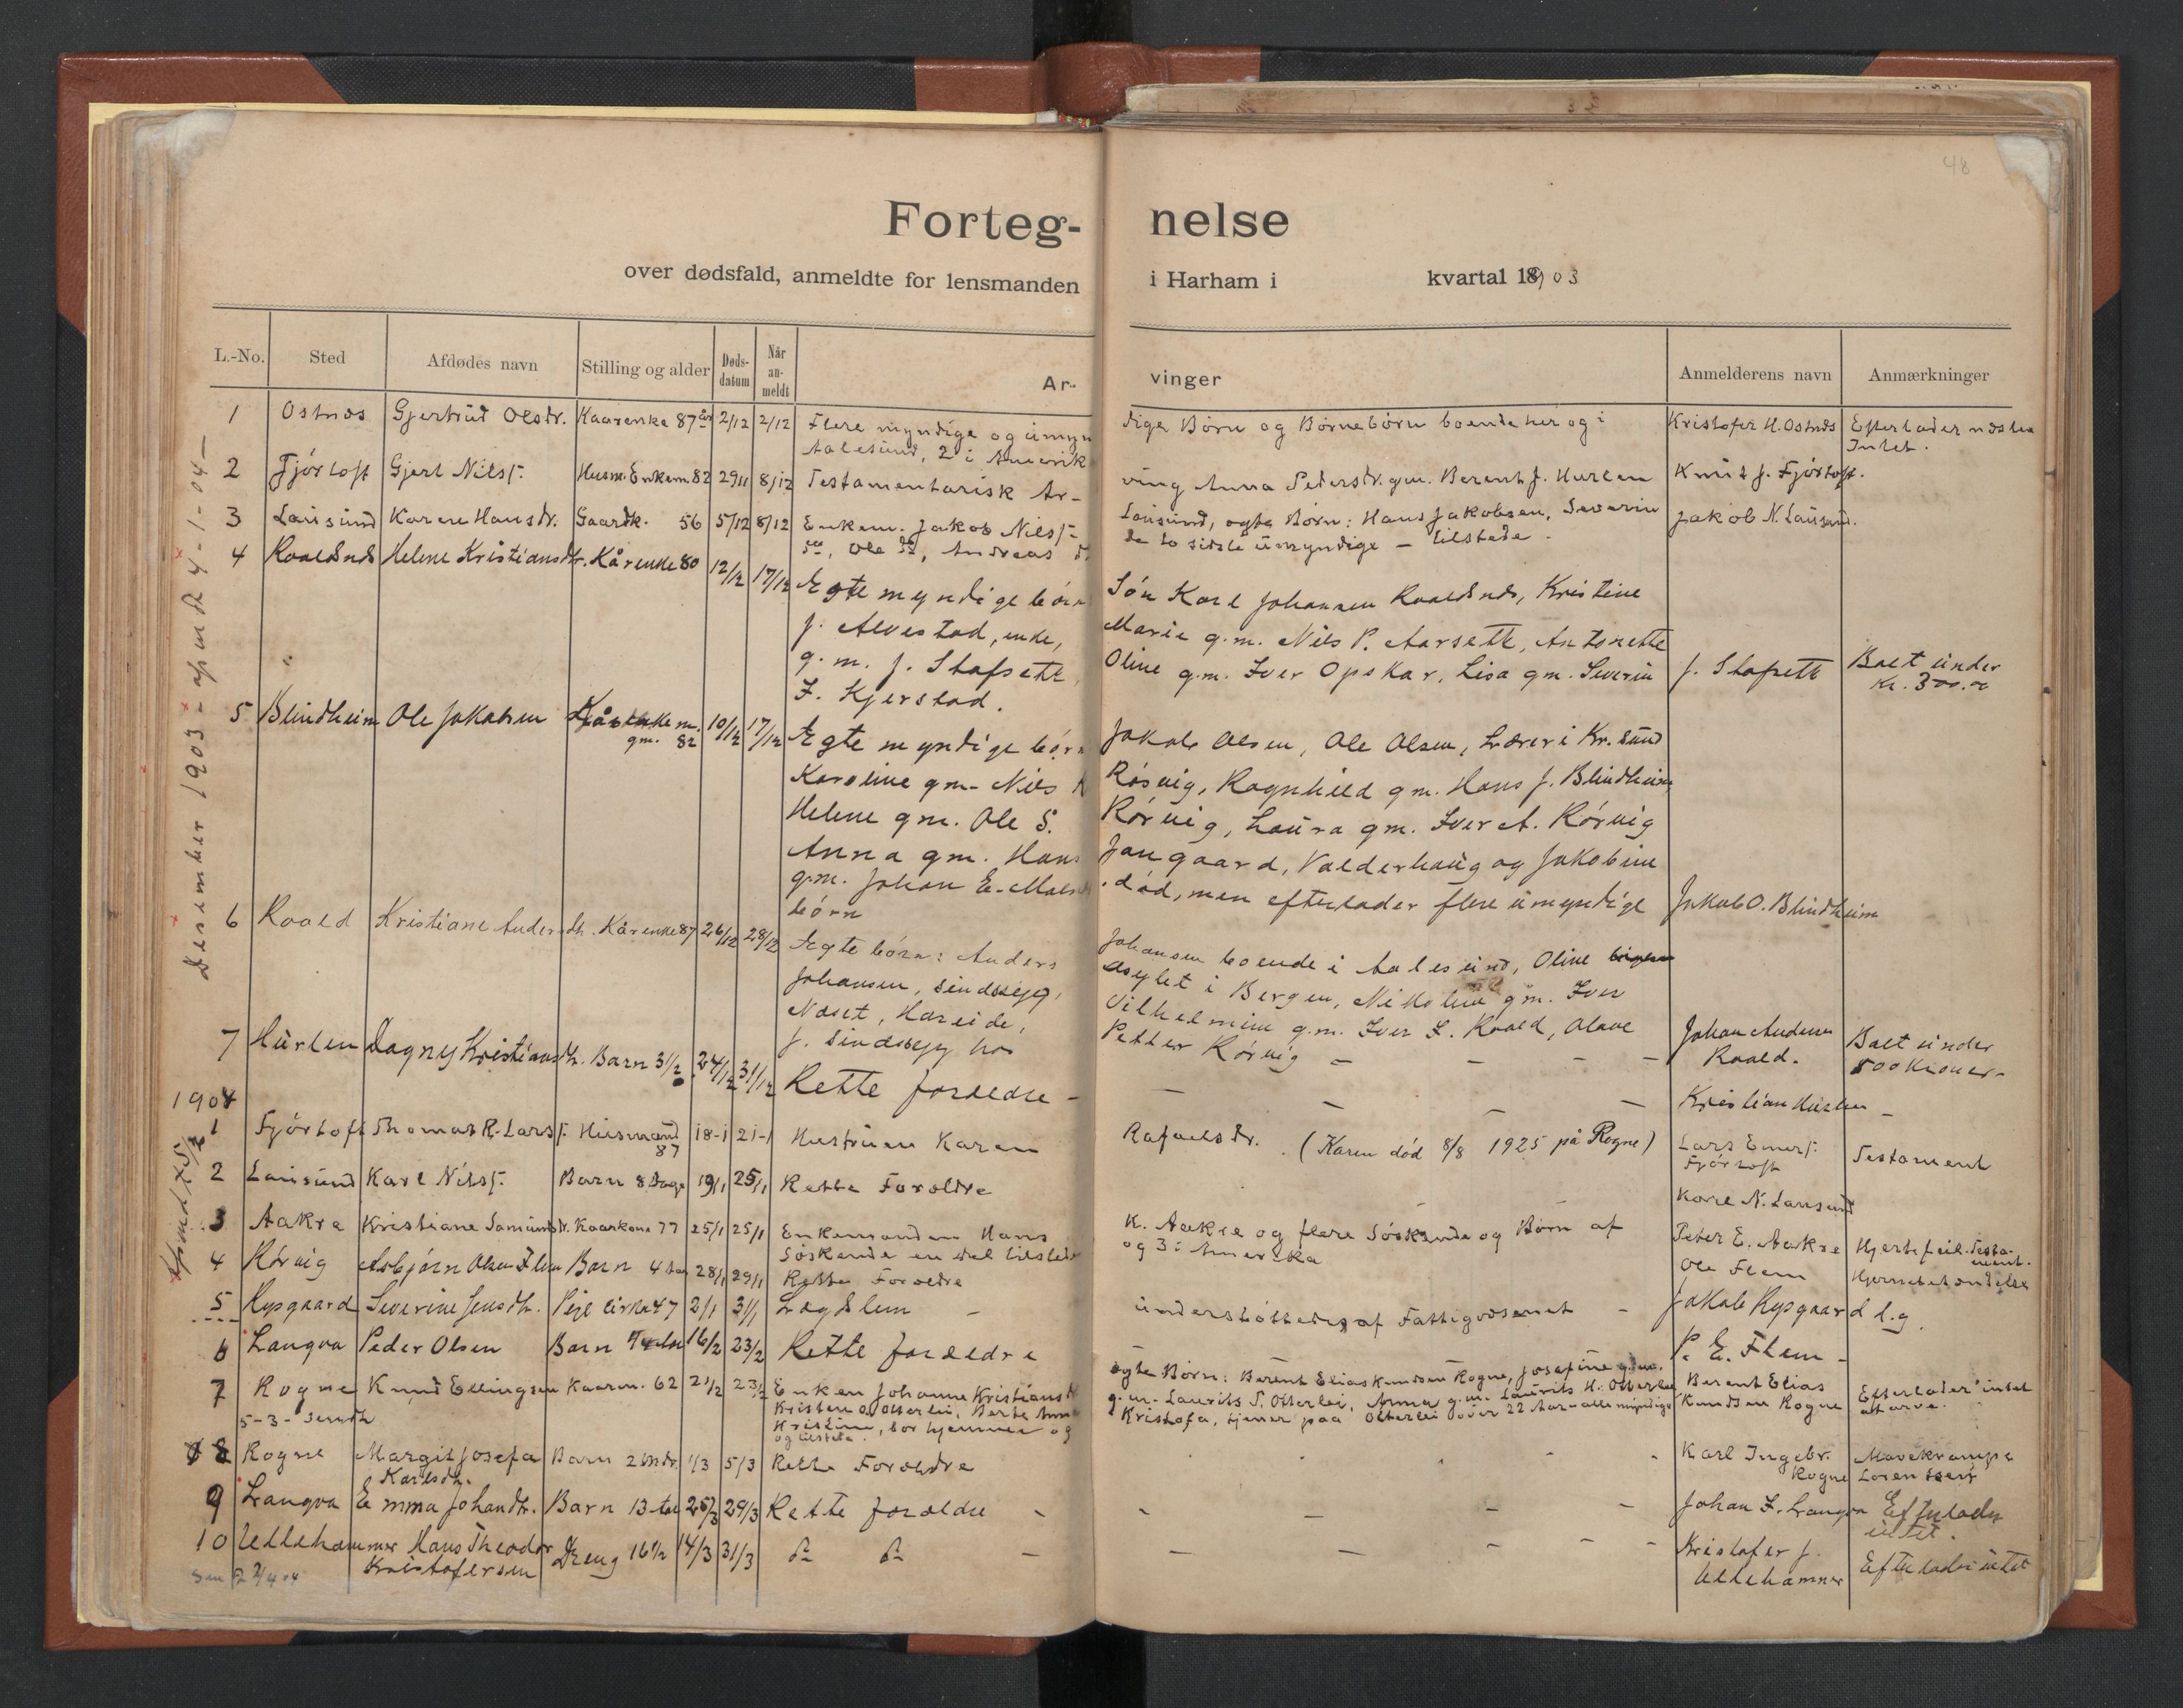 48
Forteg- nelse
over dødsfald, anmeldte for lensmanden i Harham i kvartal 1903
L.-No. Sted Afdødes navn Stilling og alder Døds-datum Når an-meldt Ar- vinger Anmelderens navn Anmærkninger
Desember 1903 - 4-1-04 -
1 Ostnæs Gjertrud Olsdr. Kaarenke 87 år 2/12 2/12 Flere myndige og umyn dige Børn og Børnebørn boende her og i Kristofer H. Ostnæs Efterlader næsten
Aalesund, 2 i Amerik Intet.
2 Fjørtoft Gjert Nilss. Husm. Enkem. 82 29/11 8/12 Testamentarisk Ar- ving Anna Pedersdr. gm. Berent J. Hurlen Knut J. Fjørtoft.
3 Lausund Karen Hansdr. Gaardk. 56 5/12 8/12 Enkem. Jakob Nilss. Lausund, ægte Børn: Hans Jakobsen, Severin Jakob N. Lausund.
do, Ole do, Andreas de to sidste umyndige - tilstede.
4 Roaldsnds Helene Kristiansdtr. Kårenke 80 12/12 17/12 Egte myndige børn Søn Karl Johansen Roaldsnds, Kristine
J. Alvestad, enke, Marie g.m. Nils P. Aarseth, Antonette
g.m. J. Stafseth, Oline g.m. Iver Opskar, Lisa gm. Severin J. Stafseth Boet under
Z. Kjerstad. kr. 300.00
5 Blindheim Ole Jakobsen Kårenkem. 10/12 17/12 Egte myndige børn Jakob Olsen, Ole Olsen, Lærer i Kr.sund
gm. 82
Karoline gm. Nils Røsvig, Ragnhild gm. Hans J. Blindheim
Helene gm. Ole S. Rørvig, Laura gm. Iver A. Rørvig
Anna gm. Hans Jangaard, Valderhaug og Jakobine
gm. Johan E. død, men efterlader flere umyndige Jakob O. Blindheim
børn
6 Roald Kristiane Andersdtr. Kårenke 87 26/12 28/12 Egte børn: Anders Johansen boende i Aalesund, Oline
Johansen, sindssyg, asylet i Bergen, Nikoline gm. Iver
Næset, Hareide, Vilhelmine g.m. Iver L. Roald, Olave Johan Andersen Boet under
J. sindssyg hos Petter Rørvig - - - - Roald. 500 Kroner -
7 Hurlen Dagny Kristiansdtr. Barn 3 1/2 24/12 31/12 Rette forældre - - - - - Kristian Hurlen -
1904
1 Fjørtoft Thomas R. Larss. Husmand 18-1 21-1 Hustruen Karen Rafaelsdr. (Karen død 8/8 1925 på Rogne) Lars Emers. Testament
87 Fjørtoft
2 Lausund Karl Nilss. Barn 8 Dage 19/1 25/1 Rette Forældre Karl N. Lausund
3 Aakre Kristiane Samundsdr. Kaarkone 77 25/1 25/1 Enkemanden Hans K. Aakre og flere Søskende og Børn af Peter E. Aakre Hjertefeil. Testa-
Søskende en del tilstede og 3 i Amerika ment.
4 Rørvig Asbjørn Olsen Flem Barn 28/1 29/1 Rette Forældre Ole Flem
5 Rypgaard Severine Jensdtr. Pige cirka 47 2/1 3/1 Lægdslem - understøttedes af Fattigvæsenet - Jakob Rypgaard d.g.
6 Langva Peder Olsen Barn 16/2 23/2 Rette forældre P. E. Flem -
7 Rogne Knud Ellingsen Kaarm. 62 21/2 23/2 Enken Johanne Kristiansdr ægte Børn: Berent Elias Knudsen Rogne, Josefine g.m. Berent Elias Efterlader intet
Kristen O. Otterlei, Berte Anna g.m. Laurits P. Otterlei, Anna g.m. Laurits H. Otterlei Knudsen Rogne at arve.
Kristine, bor hjemme og Kristofa, tjener paa Otterlei over 22 Aar - alle myndige
og tilstede.
5-3- sendt
8 Rogne Margit Josefa Barn 2 Mdr. 1/3 5/3 Rette Forældre Karl Ingebr. Mavekrampe
Karlsdtr. Rogne
9 Langva Emma Johansdtr. Barn 13 25/3 29/3 Rette forældre - - - - - Johan Z. Langva Efterlader
intet.
10 Ullehammer Hans Theodor Dreng 16 1/2 14/3 31/3 do do - - - - - - Kristofer J. Efterlader intet
Kristofersen Ullehammer
2/4 04